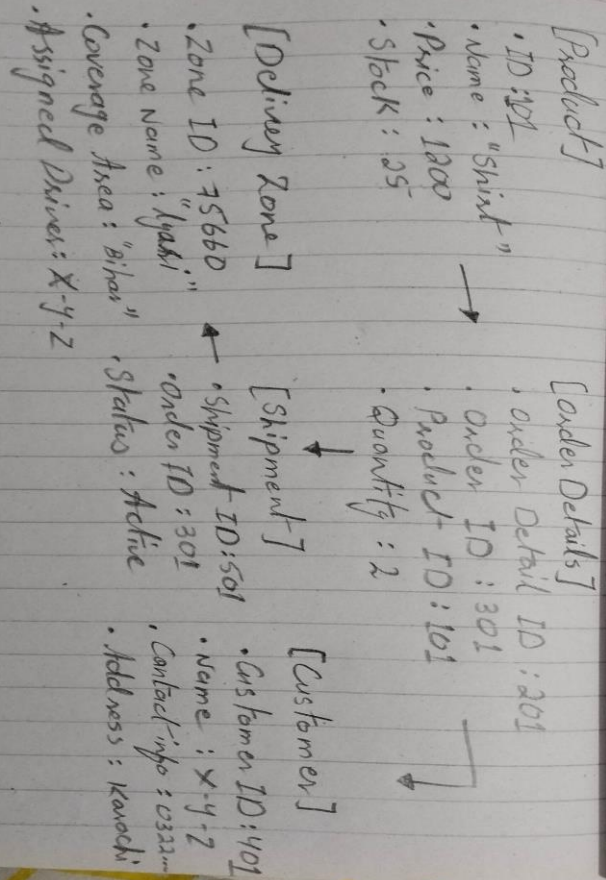 [Product]
• ID: 101
• Name: "Shirt"
• Price: 1200
• Stock: 25
[Order Details]
• Order Detail ID: 201
• Order ID: 301
• Product ID: 101
• Quantity: 2
[Delivery Zone]
• Zone ID: 75660
• Zone Name:
• Coverage Area: "Bihar"
• Assigned Driver: X-Y-Z
[Shipment]
• Shipment ID: 501
• Order ID: 301
• Status: Active
[Customer]
• Customer ID: 401
• Name: X-Y-Z
• Contact info: 0322...
• Address: Karachi